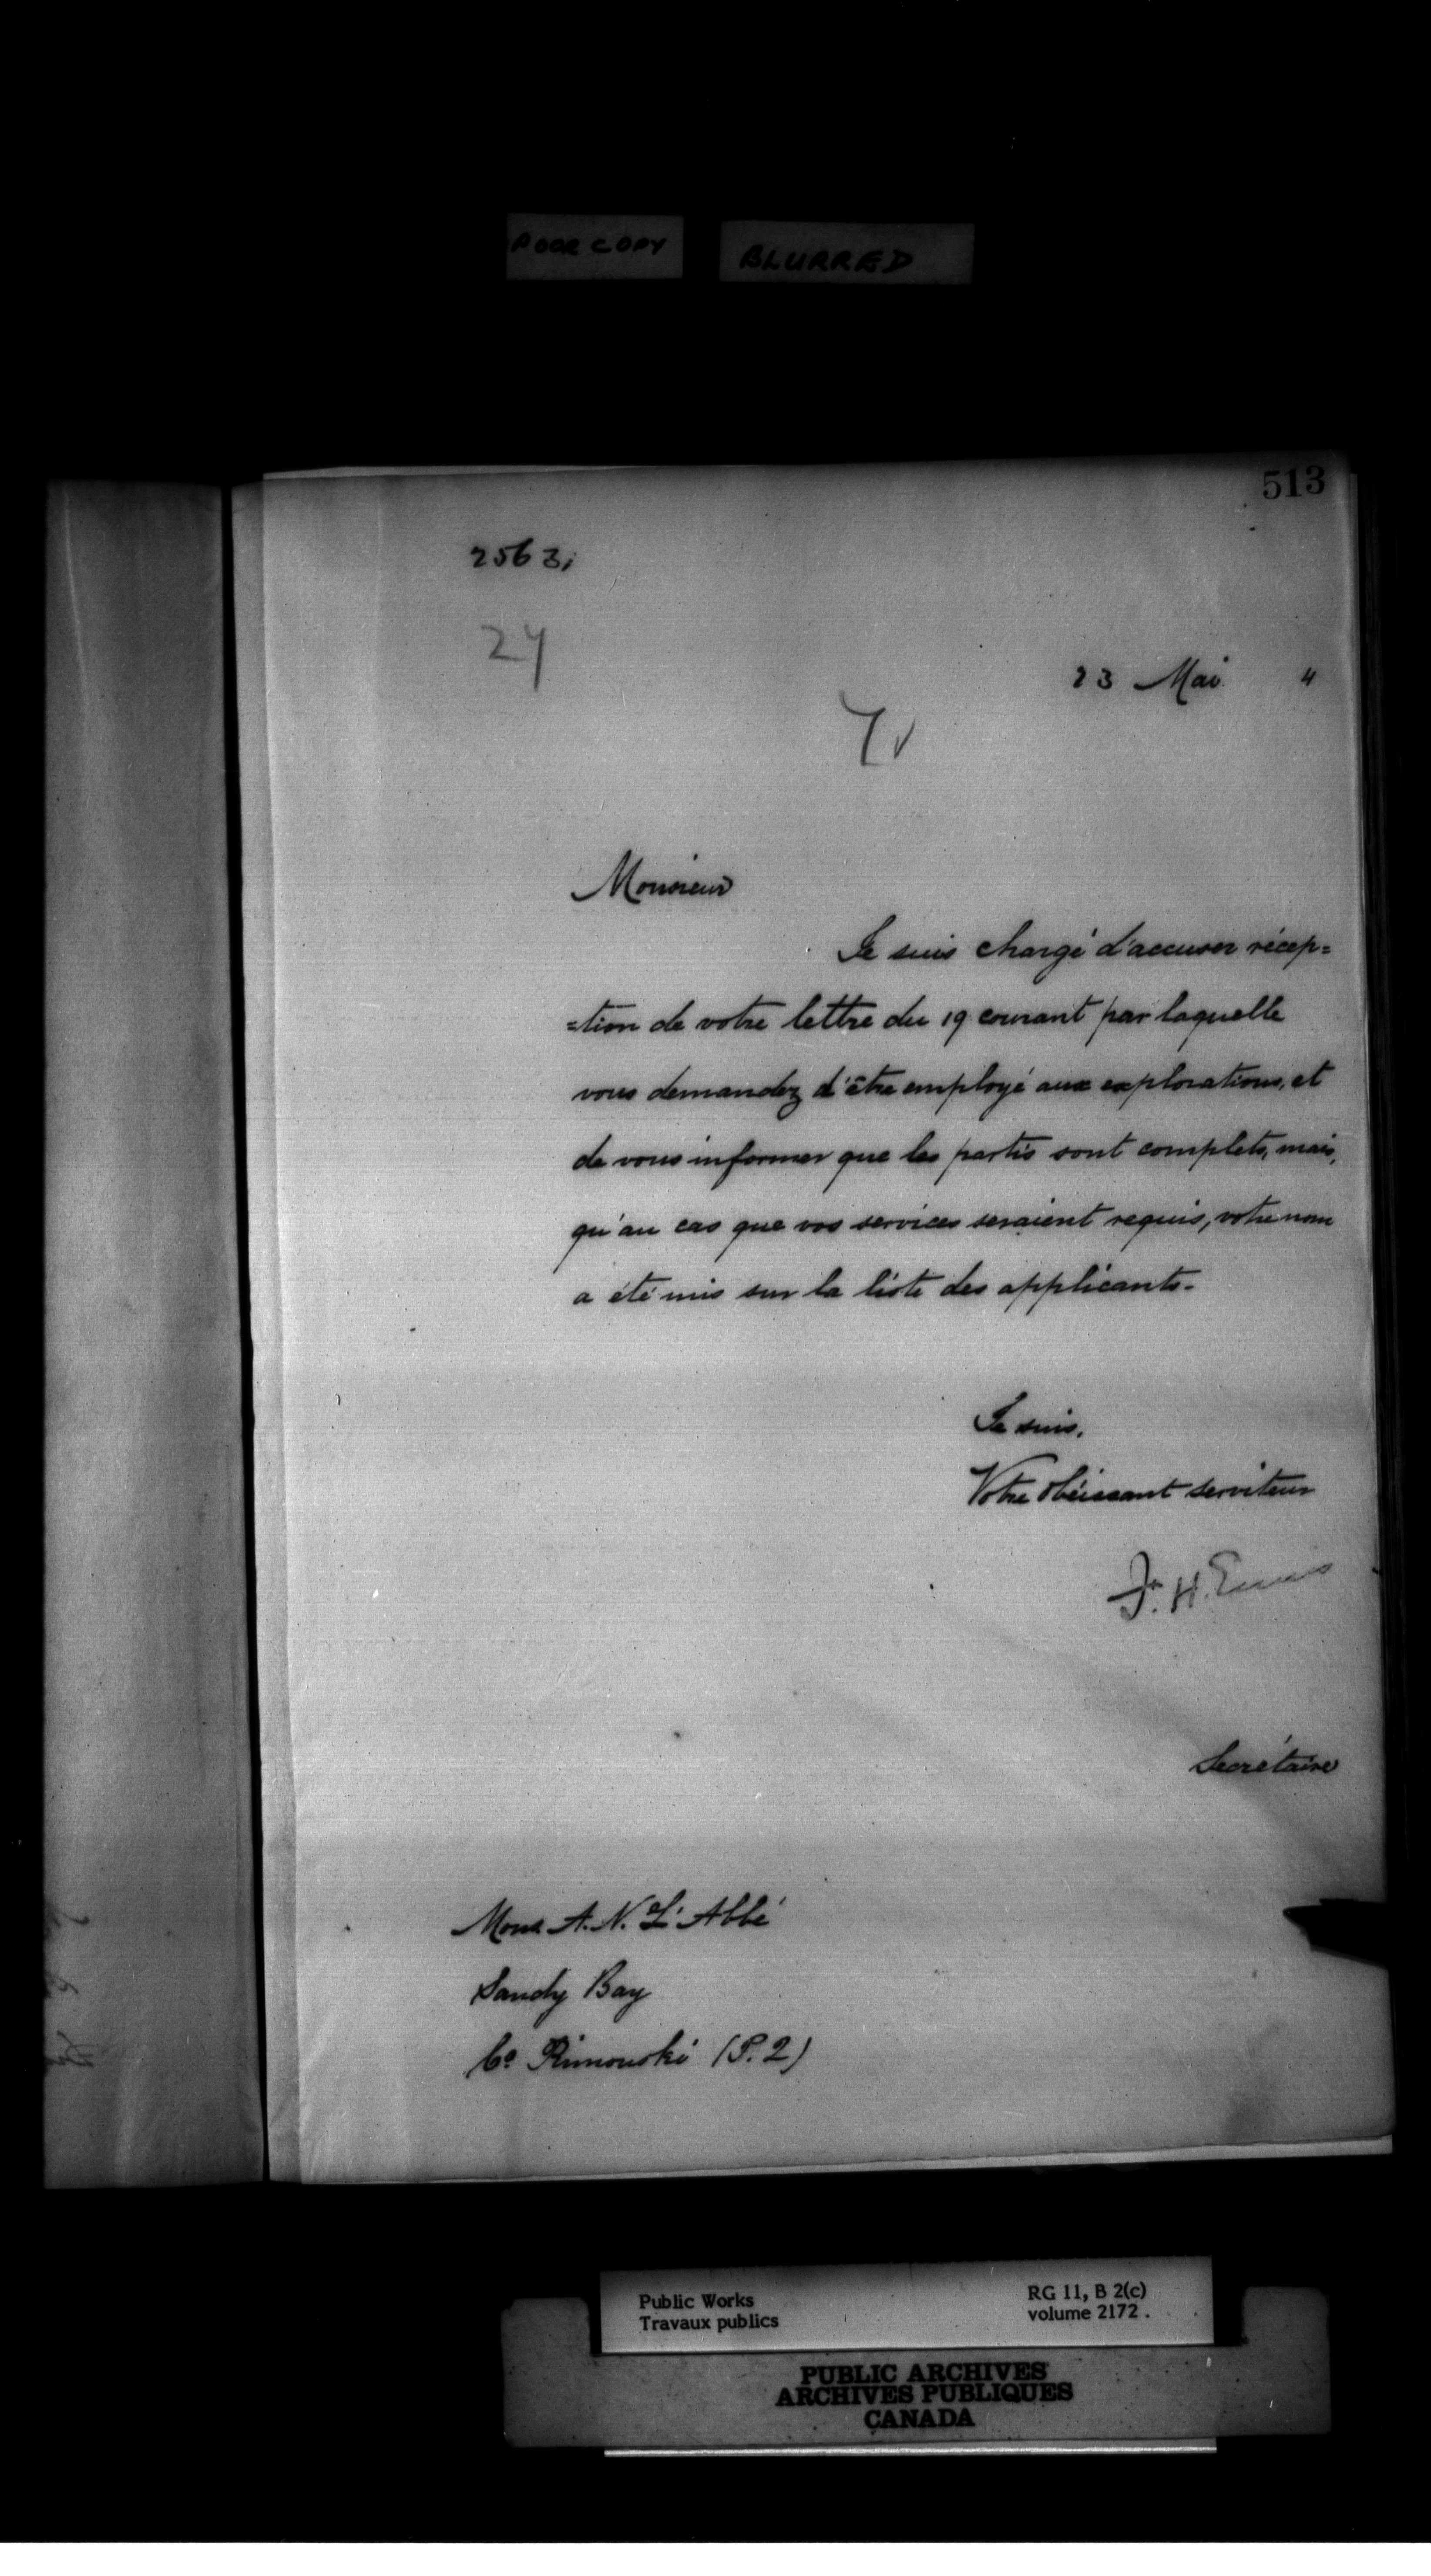 POOR COPY
BLURRED
513
2563,
24
23 Mai 4
Monsieur
Je suis chargé d'accuser récep=
=tion de votre lettre du 19 courant par laquelle
vous demandez d'être employé aux explorations, et
de vous informer que les partis sont complets, mais,
qu'au cas que vos services seraient requis, votre nom
a été mis sur la liste des applicants.
Je suis,
Votre obéissant serviteur
H. Ennis
Secrétaire
Mons. A. N. L'Abbé
Sandy Bay
Co. Rimouski (P. Q)
Public Works
Travaux publics
RG 11, B 2(c)
volume 2172.
PUBLIC ARCHIVES
ARCHIVES PUBLIQUES
CANADA